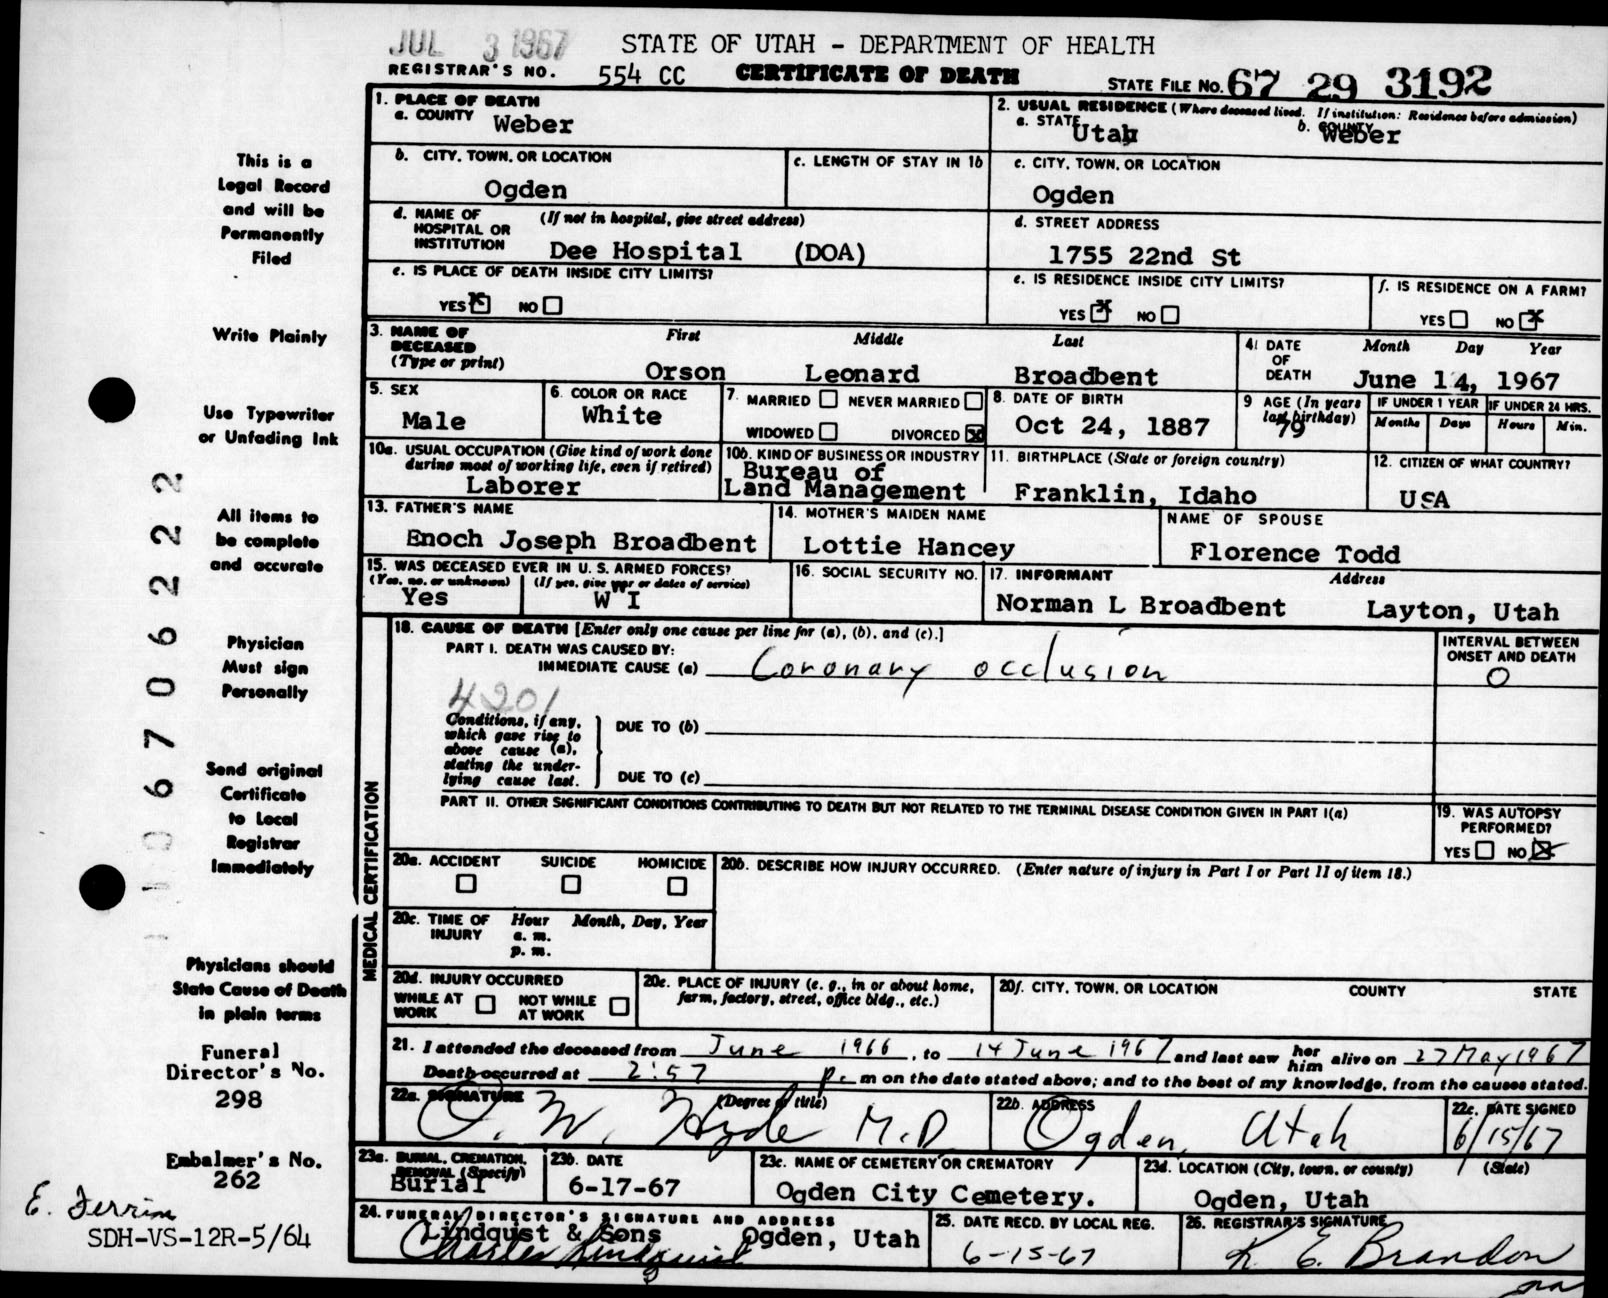 JUL 3 1967
STATE OF UTAH - DEPARTMENT OF HEALTH
REGISTRAR'S NO. 554 CC CERTIFICATE OF DEATH STATE FILE NO. 67 29 3192
1. PLACE OF DEATH
a. COUNTY Weber
2. USUAL RESIDENCE (Where deceased lived. If institution: Residence before admission)
a. STATE Utah b. COUNTY Weber
b. CITY, TOWN, OR LOCATION
Ogden
c. LENGTH OF STAY IN 1b
c. CITY, TOWN, OR LOCATION
Ogden
d. NAME OF HOSPITAL OR INSTITUTION (If not in hospital, give street address)
Dee Hospital (DOA)
d. STREET ADDRESS
1755 22nd St
e. IS PLACE OF DEATH INSIDE CITY LIMITS?
YES NO
e. IS RESIDENCE INSIDE CITY LIMITS?
YES NO
f. IS RESIDENCE ON A FARM?
YES NO
3. NAME OF DECEASED (Type or print)
First Middle Last
Orson Leonard Broadbent
4. DATE OF DEATH Month Day Year
June 14, 1967
5. SEX
Male
6. COLOR OR RACE
White
7. MARRIED NEVER MARRIED
WIDOWED DIVORCED
8. DATE OF BIRTH
Oct 24, 1887
9 AGE (In years last birthday)
79
IF UNDER 1 YEAR IF UNDER 24 HRS.
Months Days Hours Min.
10a. USUAL OCCUPATION (Give kind of work done during most of working life, even if retired)
Laborer
10b. KIND OF BUSINESS OR INDUSTRY
Bureau of
Land Management
11. BIRTHPLACE (State or foreign country)
Franklin, Idaho
12. CITIZEN OF WHAT COUNTRY?
USA
13. FATHER'S NAME
Enoch Joseph Broadbent
14. MOTHER'S MAIDEN NAME
Lottie Hancey
NAME OF SPOUSE
Florence Todd
15. WAS DECEASED EVER IN U. S. ARMED FORCES?
(Yes, no, or unknown) (If yes, give war or dates of service)
Yes W W I
16. SOCIAL SECURITY NO.
17. INFORMANT Address
Norman L Broadbent Layton, Utah
MEDICAL CERTIFICATION
18. CAUSE OF DEATH [Enter only one cause per line for (a), (b), and (c).]
PART I. DEATH WAS CAUSED BY:
IMMEDIATE CAUSE (a) Coronary occlusion
INTERVAL BETWEEN ONSET AND DEATH
0
4201
Conditions, if any, which gave rise to above cause (a), stating the underlying cause last.
DUE TO (b)
DUE TO (c)
PART II. OTHER SIGNIFICANT CONDITIONS CONTRIBUTING TO DEATH BUT NOT RELATED TO THE TERMINAL DISEASE CONDITION GIVEN IN PART I(a)
19. WAS AUTOPSY PERFORMED?
YES NO
20a. ACCIDENT SUICIDE HOMICIDE
20b. DESCRIBE HOW INJURY OCCURRED. (Enter nature of injury in Part I or Part II of item 18.)
20c. TIME OF INJURY Hour Month, Day, Year
a. m.
p. m.
20d. INJURY OCCURRED
WHILE AT WORK NOT WHILE AT WORK
20e. PLACE OF INJURY (e. g., in or about home, farm, factory, street, office bldg., etc.)
20f. CITY, TOWN, OR LOCATION COUNTY STATE
21. I attended the deceased from June 1966, to 14 June 1967 and last saw her him alive on 27 May 1967
Death occurred at 2:57 p. m on the date stated above; and to the best of my knowledge, from the causes stated.
22a. SIGNATURE (Degree or title)
O. W. Hyde M.D
22b. ADDRESS
Ogden, Utah
22c. DATE SIGNED
6/15/67
23a. BURIAL, CREMATION, REMOVAL (Specify)
Burial
23b. DATE
6-17-67
23c. NAME OF CEMETERY OR CREMATORY
Ogden City Cemetery.
23d. LOCATION (City, town, or county) (State)
Ogden, Utah
24. FUNERAL DIRECTOR'S SIGNATURE AND ADDRESS
Lindquist & Sons Ogden, Utah
Charles Lindquist
25. DATE RECD. BY LOCAL REG.
6-15-67
26. REGISTRAR'S SIGNATURE
K. E. Brandon
This is a
Legal Record
and will be
Permanently
Filed
Write Plainly
Use Typewriter
or Unfading Ink
All items to
be complete
and accurate
Physician
Must sign
Personally
Send original
Certificate
to Local
Registrar
Immediately
Physicians should
State Cause of Death
in plain terms
Funeral
Director's No.
298
Embalmer's No.
262
E. Ferrin
SDH-VS-12R-5/64